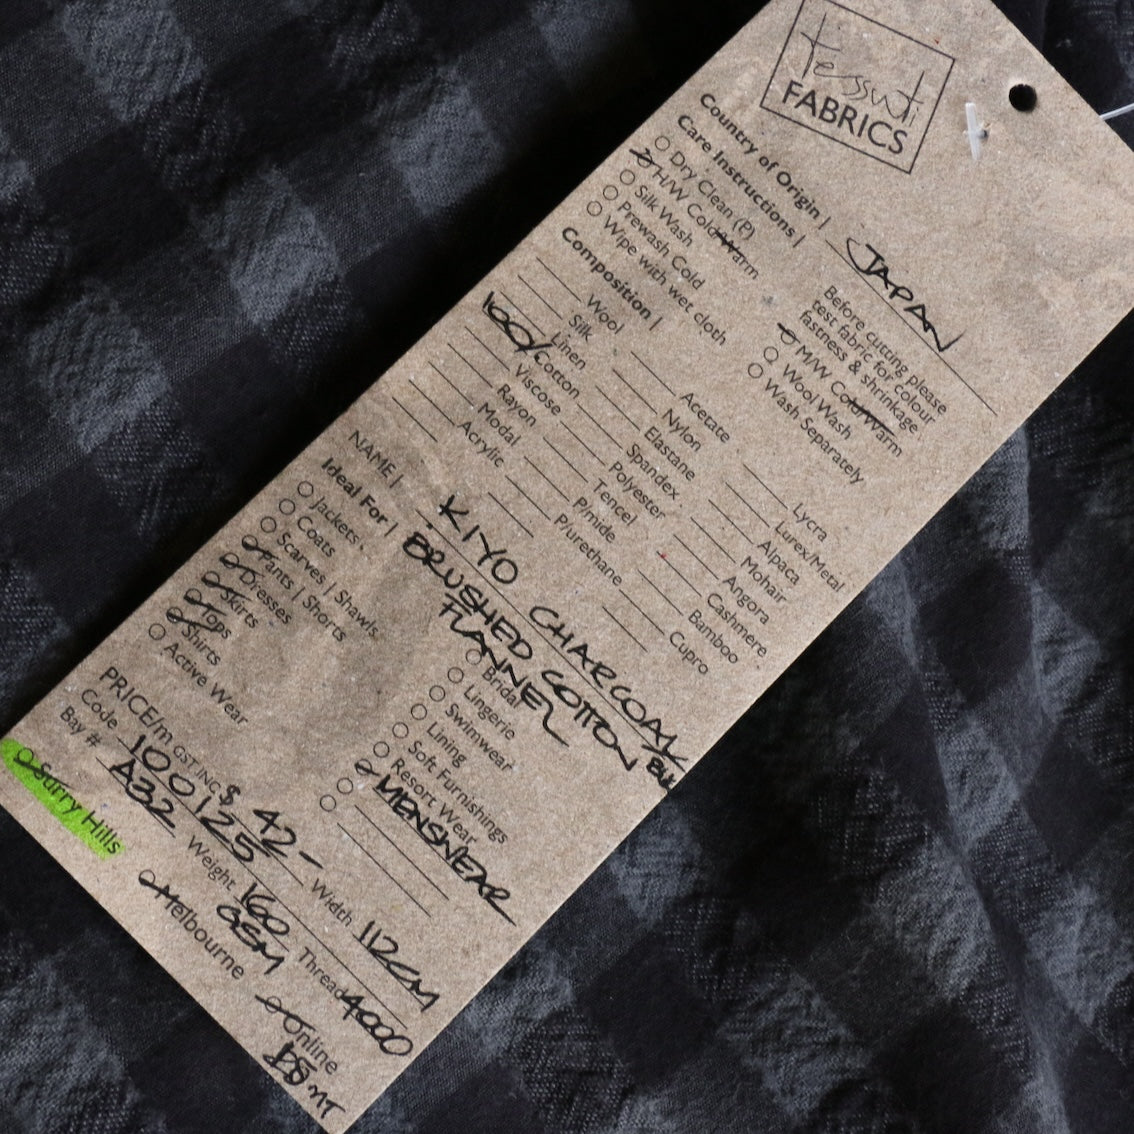 tessuti
FABRICS
Country of Origin | JAPAN
Care Instructions |
Before cutting please
test fabric for colour
fastness & shrinkage
Dry Clean (P)
H/W Cold/Warm
Silk Wash
Prewash Cold
Wipe with wet cloth
M/W Cold/Warm
Wool Wash
Wash Separately
Composition |
Wool
Silk
Linen
100% Cotton
Viscose
Rayon
Modal
Acrylic
Acetate
Nylon
Elastane
Spandex
Polyester
Tencel
P/mide
P/urethane
Lycra
Lurex/Metal
Alpaca
Mohair
Angora
Cashmere
Bamboo
Cupro
NAME | KIYO CHARCOAL
BRUSHED COTTON
FLANNEL
Ideal For |
Jackets
Coats
Scarves | Shawls
Pants | Shorts
Dresses
Skirts
Tops
Shirts
Active Wear
Bridal
Lingerie
Swimwear
Lining
Soft Furnishings
Resort Wear
MENSWEAR
PRICE/m GST.INC $ 42- Width 112CM
Code 100125 Weight 160 GSM Thread 4000
Bay # A32
Surry Hills
Melbourne
Online